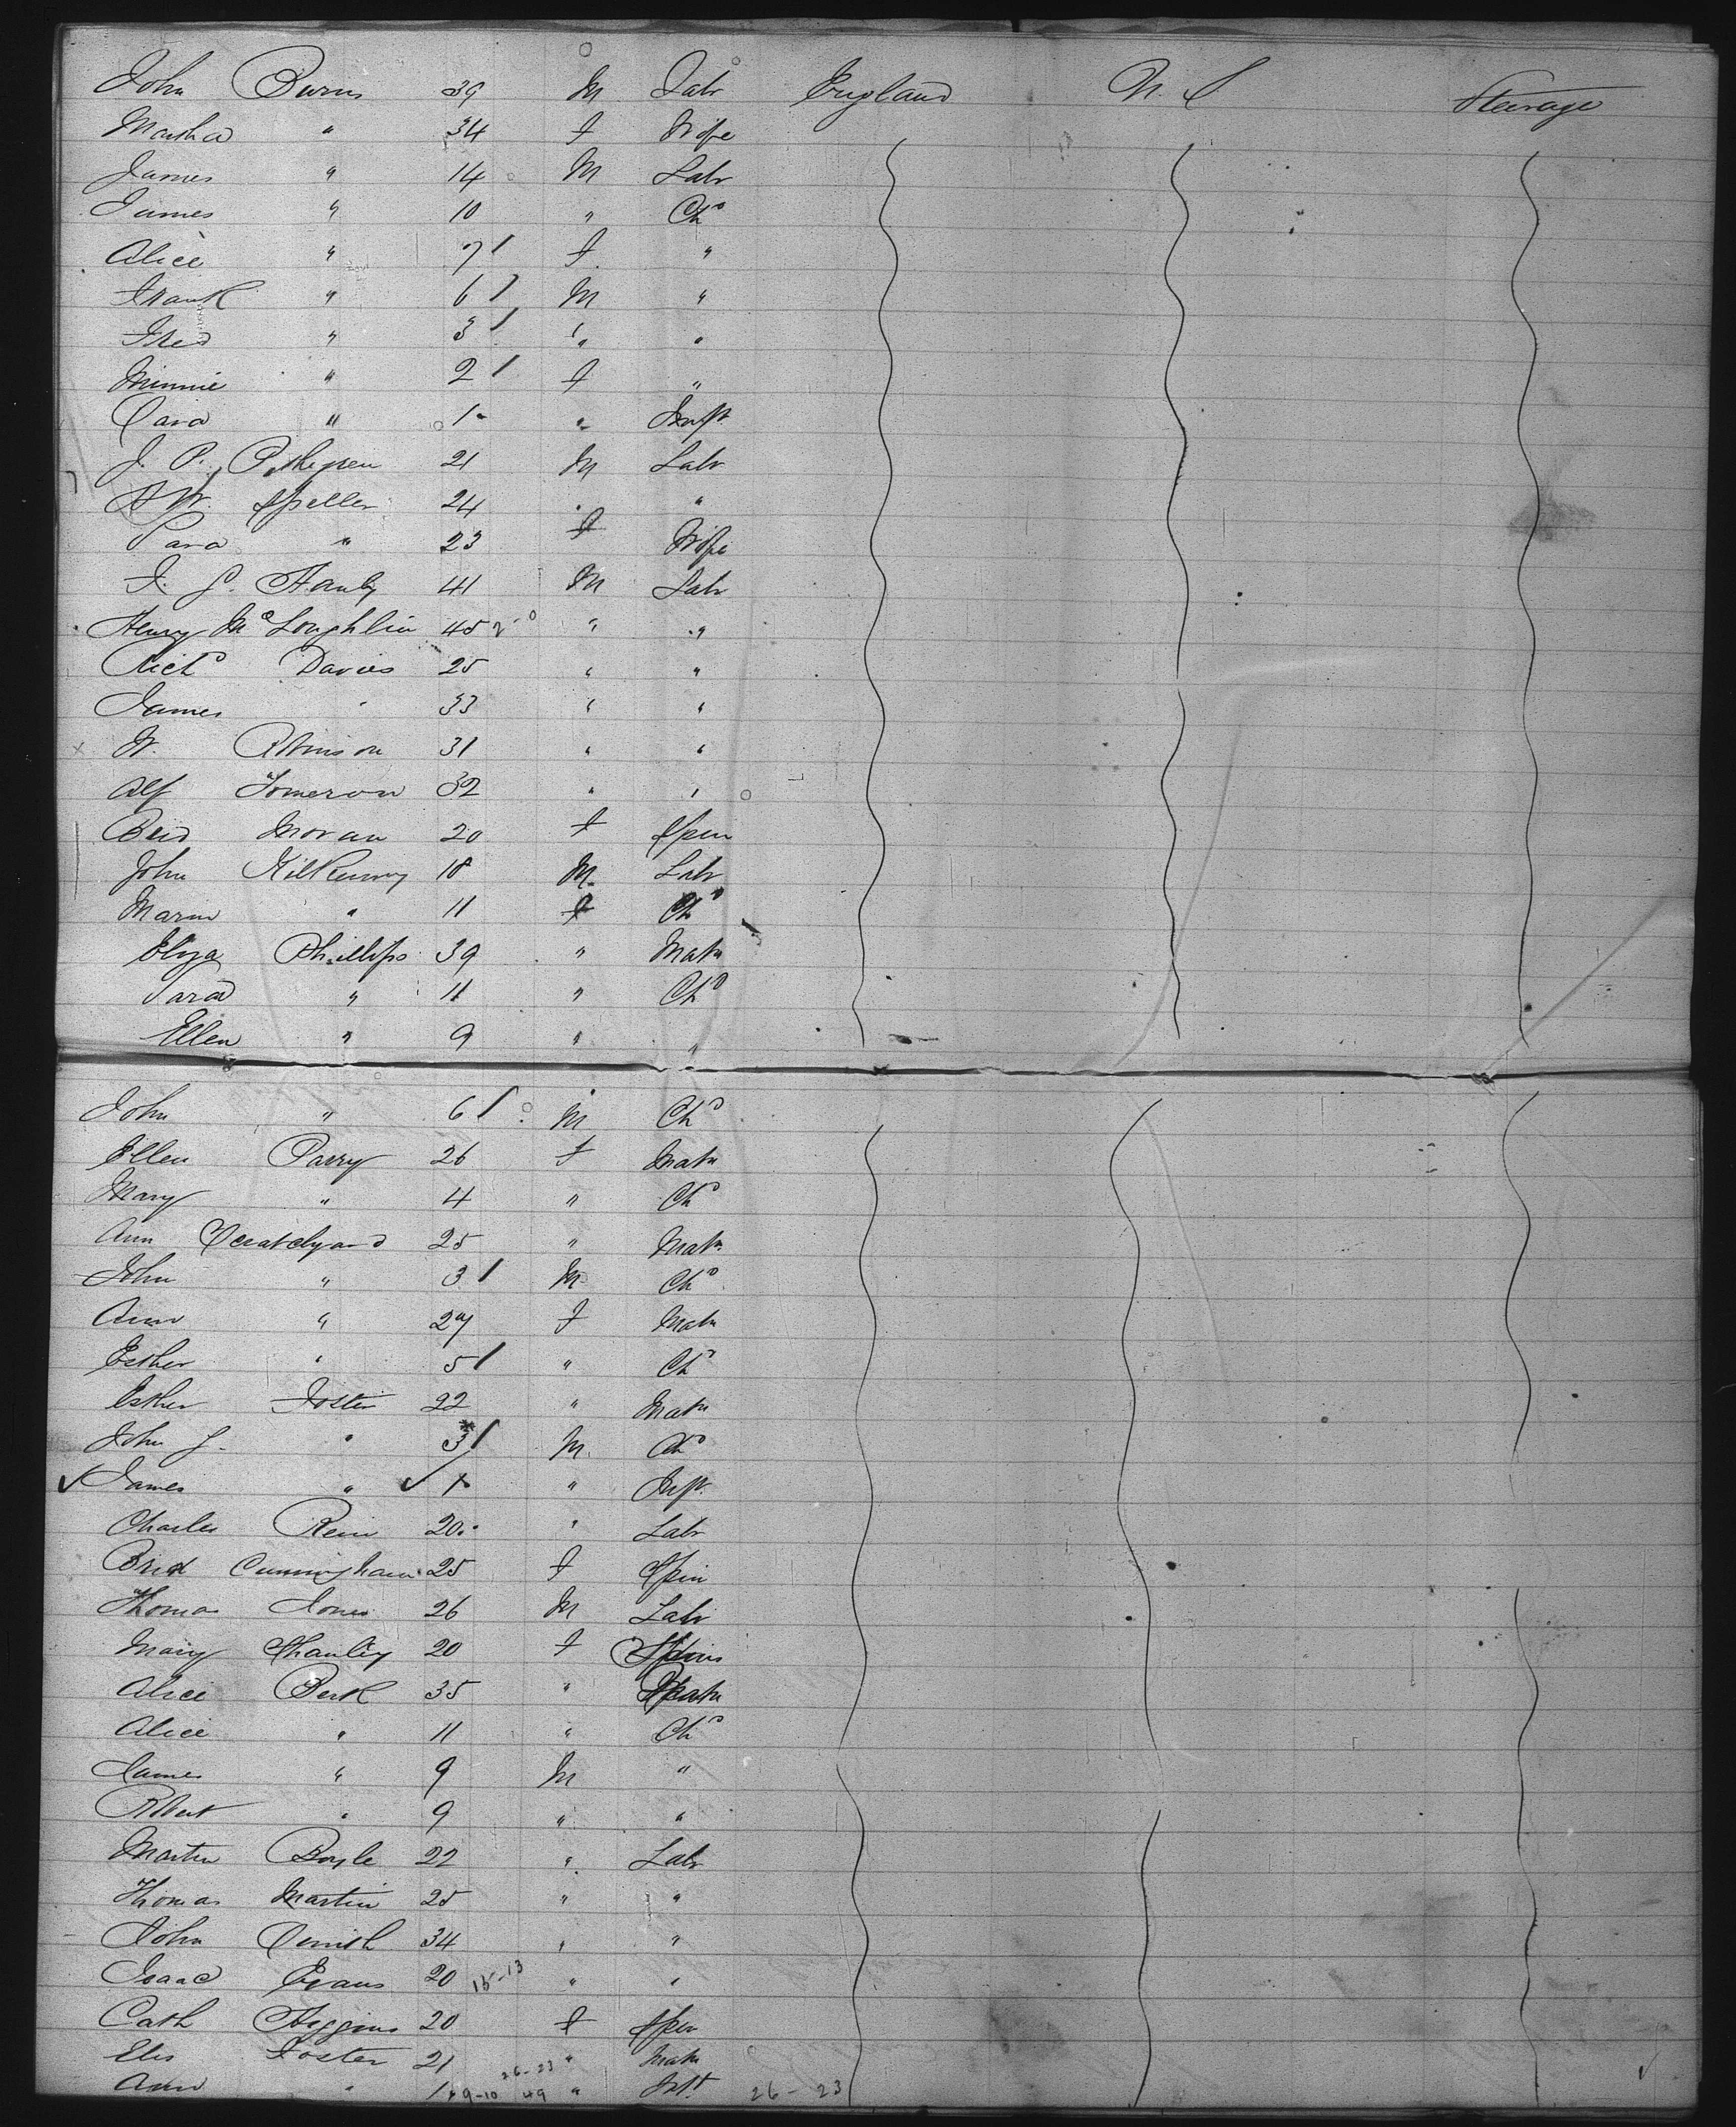 John Burns 39 M Labr England U. S Steerage
Martha " 34 F Wife
James " 14 M Labr
James " 10 " Chd
Alice " 7 / F "
Frank " 6 / M "
Fred " 3 / " "
Minnie " 2 / F "
Sara " 1 " Inft
J. P. 21 M Labr
W. Speller 24 " "
Sara " 23 F Wife
F. S. Hanly 41 M Labr
Henry McLoughlin 45 " "
Richd Davies 25 " "
James " 33 " "
W. Robinson 31 " "
Alf Tomerson 32 " "
Brid Moran 20 F Spin
John Kilkenny 18 M Labr
Maria " 11 F Chd
Eliza Phillips 39 " Matn
Sara " 11 " Chd
Ellen " 9 " "
John " 6 / M Chd
Ellen Parry 26 F Matn
Mary " 4 " Chd
Ann Scratchyard 25 " Matn
John " 3 / M Chd
Ann " 27 F Matn
Esther " 5 / " Chd
Esther Foster 22 " Matn
John J. " 3 / M Chd
✓ James " ✓ 1 " Inft.
Charles Rein 20 " Labr
Brid Cunningham 25 F Spin
Thomas Jones 26 M Labr
Mary Shanley 20 F Spin
Alice Berk 35 " Matn
Alice " 11 " Chd
James " 9 M "
Robert " 9 " "
Martin Boyle 22 " Labr
Thomas Martin 25 " "
John 34 " "
Isaac Evans 20 15-13 " "
Cath Higgins 20 F Spin
Elis Foster 21 26-23 " Matn
Ann " 1 49 " Inft 26-23